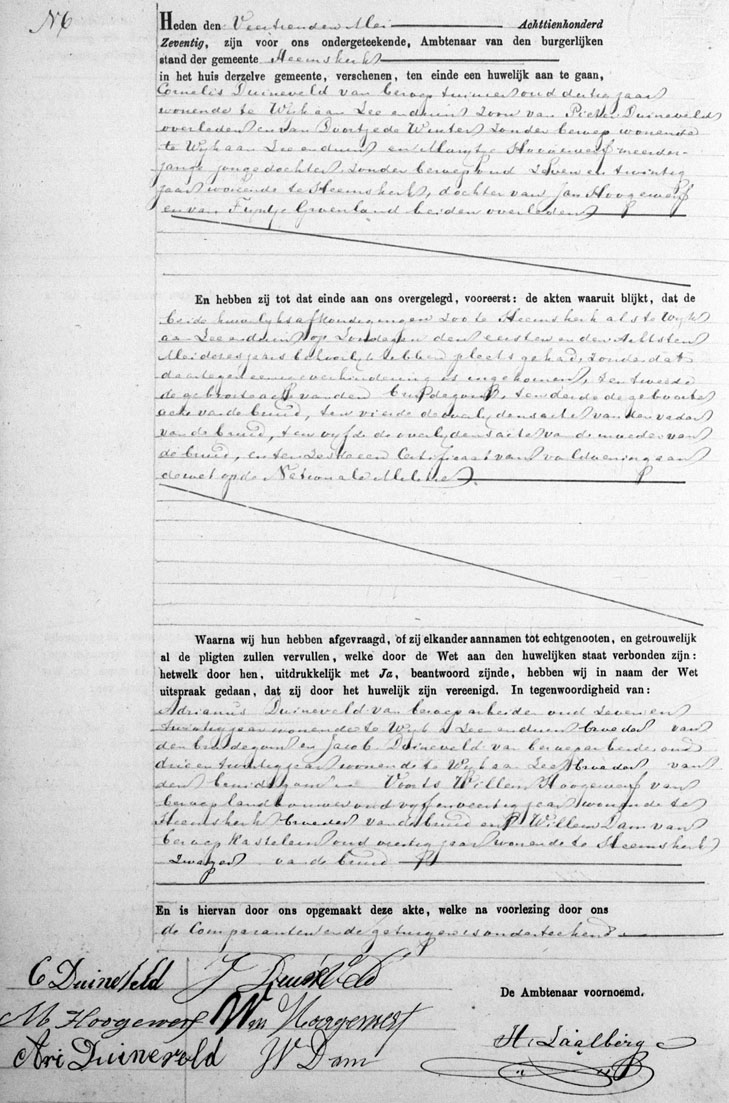 N 6
Heden den Veertienden Mei Achttienhonderd
Zeventig, zijn voor ons ondergeteekende, Ambtenaar van den burgerlijken
stand der gemeente Heemskerk
in het huis derzelve gemeente, verschenen, ten einde een huwelijk aan te gaan,
Cornelis Duineveld van beroep tuinier oud dertig jaar
wonende te Wijk aan Zee en duin Zoon van Pieter Duineveld
overleden en van Doortje de Winter Zonder beroep wonende
te Wijk aan Zee en duin en Maartje Hoogewerf meerder
jarige jonge dochter, Zonder beroep oud Zeven en twintig
jaar wonende te Heemskerk, dochter van Jan Hoogewerf
en van Fijntje Groenland beiden overleden
En hebben zij tot dat einde aan ons overgelegd, vooreerst: de akten waaruit blijkt, dat de
beide huwelijksafkondigingen zoo te Heemskerk als te Wijk
aan Zee en duin op Zondagen den eersten en den Achtsten
Mei dezes jaars behoorlijk hebben plaats gehad, zonder dat
daartegen eenige verhindering is ingekomen, ten tweede
de geboorteacte van den bruidegom, ten derde de geboorte
acte van de bruid, ten vierde de overlydensacte van den vader
van de bruid, ten vyfde de overlydensacte van de moeder van
de bruid, en ten Zesde een Certificaat van voldoening aan
de wet op de Nationale Militie
Waarna wij hun hebben afgevraagd, of zij elkander aannamen tot echtgenooten, en getrouwelijk
al de pligten zullen vervullen, welke door de Wet aan den huwelijken staat verbonden zijn:
hetwelk door hen, uitdrukkelijk met Ja, beantwoord zijnde, hebben wij in naam der Wet
uitspraak gedaan, dat zij door het huwelijk zijn vereenigd. In tegenwoordigheid van:
Adrianus Duineveld van beroep arbeider oud Zeven en
twintig jaar wonende te Wijk a Zee en duin Broeder van
den bruidegom en Jacob Duineveld van beroep arbeider oud
drie en twintig jaar wonende te Wijk aan Zee Broeder van
den bruidegom Voorts Willem Hoogewerf van
beroep landbouwer oud vyf en veertig jaar wonende te
Heemskerk Broeder van de bruid en Willem Dam van
beroep Kastelein oud veertig jaar wonende te Heemskerk
Zwager van de bruid
En is hiervan door ons opgemaakt deze akte, welke na voorlezing door ons
de Comparanten en de getuigen is onderteekend.
C Duineveld J Duineveld
De Ambtenaar voornoemd.
M Hoogewerf Wm Hoogewerf
H. Laalberg
Ari Duineveld W Dam